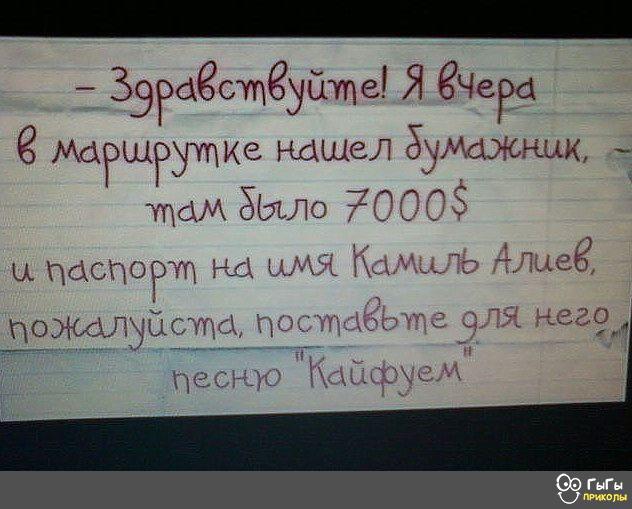 - Здравствуйте! Я вчера
в маршрутке нашел бумажник,
там было 7000$
и паспорт на имя Камиль Алиев,
пожалуйста, поставьте для него
песню "Кайфуем"
ГыГы
приколы